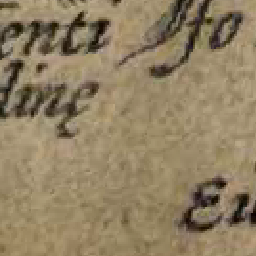 enti Iſo
dinę
Eu